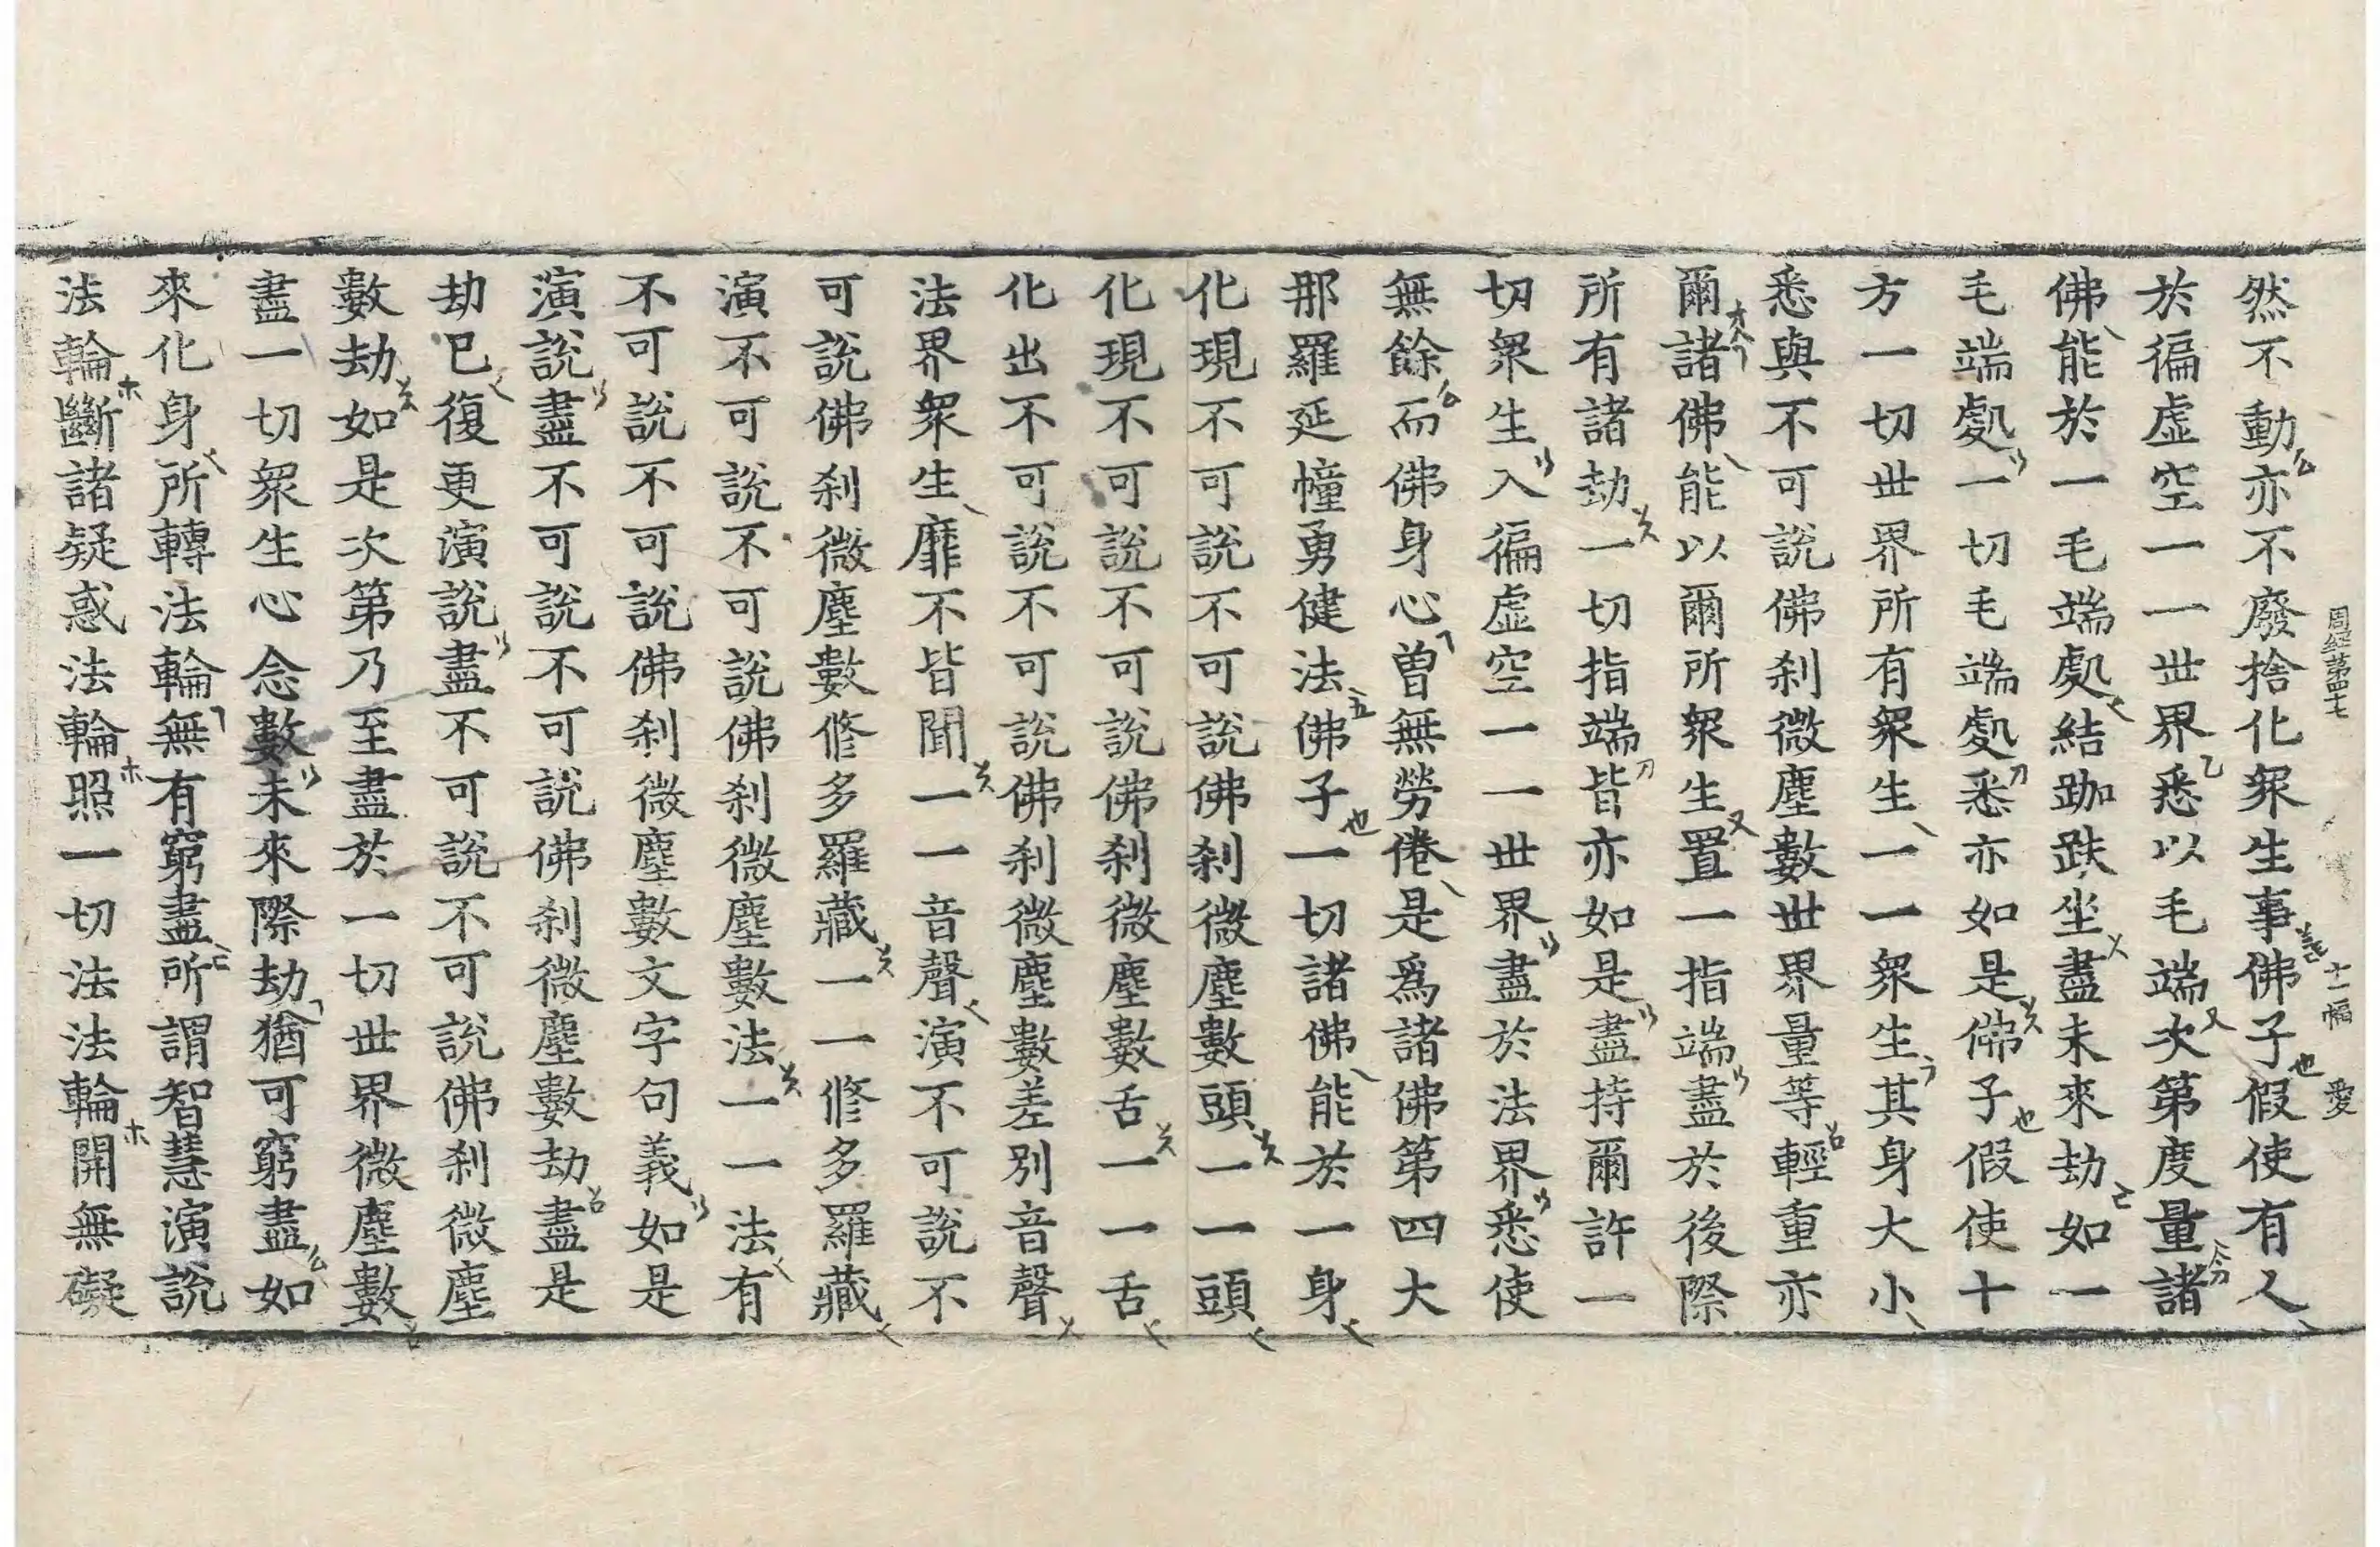 周經第四十七 十一幅 愛
然不動亦不廢捨化衆生事佛子假使有人
於徧虛空一一世界悉以毛端次第度量諸
佛能於一毛端處結跏趺坐盡未來劫如一
毛端處一切毛端處悉亦如是佛子假使十
方一切世界所有衆生一一衆生其身大小
悉與不可說佛刹微塵數世界量等輕重亦
爾諸佛能以爾所衆生置一指端盡於後際
所有諸劫一切指端皆亦如是盡持爾許一
切衆生入徧虛空一一世界盡於法界悉使
無餘而佛身心曽無勞倦是爲諸佛第四大
那羅延幢勇健法佛子一切諸佛能於一身
化現不可說不可說佛刹微塵數頭一一頭
化現不可說不可說佛刹微塵數舌一一舌
化出不可說不可說佛刹微塵數差別音聲
法界衆生靡不皆聞一一音聲演不可說不
可說佛刹微塵數修多羅藏一一修多羅藏
演不可說不可說佛刹微塵數法一一法有
不可說不可說佛刹微塵數文字句義如是
演說盡不可說不可說佛刹微塵數劫盡是
劫已復更演說盡不可說不可說佛刹微塵
數劫如是次第乃至盡於一切世界微塵數
盡一切衆生心念數未來際劫猶可窮盡如
來化身所轉法輪無有窮盡所謂智慧演說
法輪斷諸疑惑法輪照一切法法輪開無礙